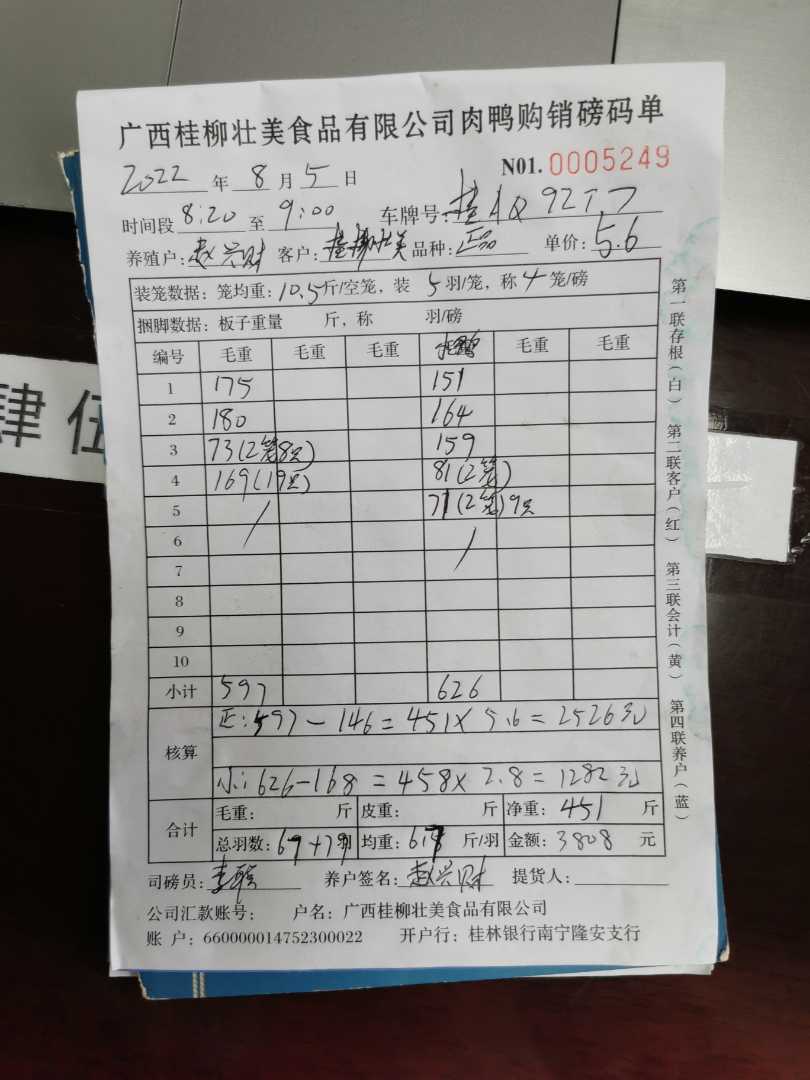 广西桂柳壮美食品有限公司肉鸭购销磅码单
2022 年 8 月 5 日 N01. 0005249
时间段 8:20 至 9:00 车牌号:桂AQ92T7
养殖户:赵兴财 客户:桂柳壮美 品种:正品 单价:5.6
装笼数据：笼均重:10.5斤/空笼，装 5 羽/笼，称 4 笼/磅
捆脚数据：板子重量 斤，称 羽/磅
编号 毛重 毛重 毛重 毛重 毛重
1 175 151
2 180 164
3 73(2笼8只) 159
4 169(19只) 81(2笼)
5 / 71(2笼)9只
6 /
7
8
9
10
小计 597 626
核算
正:597-146=451×5.6=2526元
小:626-168=458×2.8=1282元
合计
毛重: 斤 皮重: 斤 净重: 451 斤
总羽数:67+79 均重: 斤/羽 金额:3808 元
司磅员: 养户签名:赵兴财 提货人:
公司汇款账号: 户名：广西桂柳壮美食品有限公司
账 户：660000014752300022 开户行：桂林银行南宁隆安支行
第一联存根(白) 第二联客户(红) 第三联会计(黄) 第四联养户(蓝)
肆伍